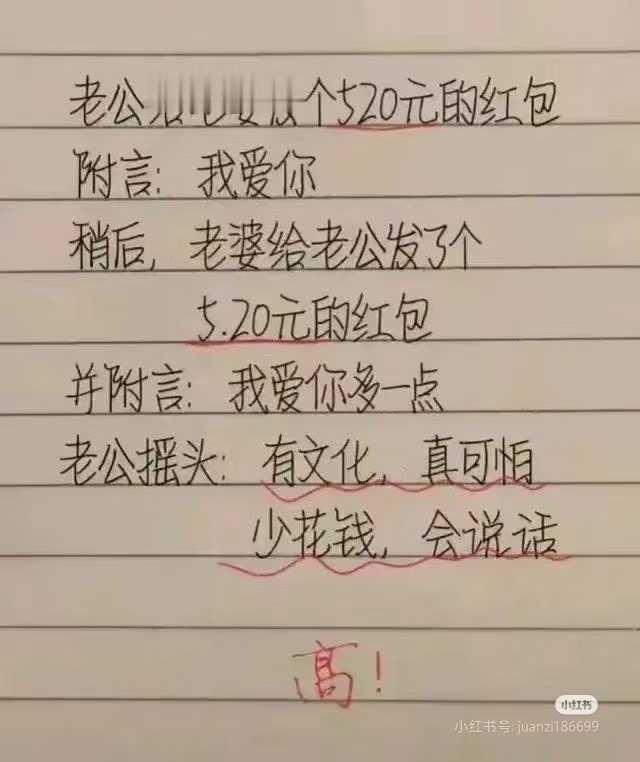 老公个520元的红包
附言：我爱你
稍后，老婆给老公发了个
5.20元的红包
并附言：我爱你多一点
老公摇头：有文化，真可怕
少花钱，会说话
高！
小红书
小红书号: juanzi186699